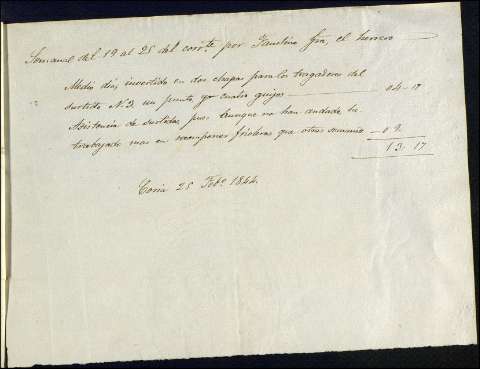 Semanal del 19 al 25 del corrte por Faustino Gra, el herrero
Medio dia, invertido en dos chapas para los tragaderos del
surtido N.2 un punto, y cuatro guijos 04-17
Asistencia de surtidos, pues aunque no han andado he
trabajado mas en componer frioleras que otras 09.
13.17
Coria 25 Febo 1844.